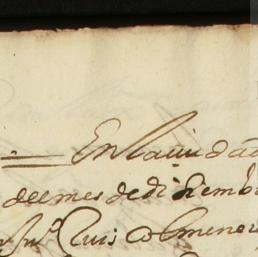 En la ciudad
del mes de diciemb
Luis Colmener